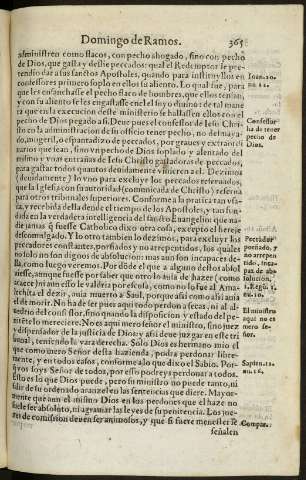 Domingo de Ramos. 365
administren como flacos, con pecho ahogado, sino con pecho
de Dios, que gasta y deshaze pecados: qual el Redemptor se pre-
tendio dar a sus sanctos Apostoles, quando para instituyllos en
confessores primero soplo en ellos su aliento. Lo qual fue, para
que les ensanchasse el pecho flaco de hombres, que ellos tenian,
y con su aliento se les engastasse en el suyo diuino: de tal mane
ra que en la execucion deste ministerio se hallassen ellos con el
pecho de Dios pegado a si. Deue pues el confessor de Iesu Chri-
sto en la administracion de su officio tener pecho, no del maya-
do, ni gentil, o espantadizo de pecados, por graues y extraordi-
narios que sean, sino vn pecho de Dios soplado y alentado del
mismo y vnas entrañas de Iesu Christo gastadoras de peccados,
para gastar todos quantos deuidamente vinieren a el. Dezimos
(deuidamente) lo vno para excluyr los peccados reseruados,
que la Iglesia con su autoridad (comunicada de Christo) reserua
para otros tribunales superiores. Conforme a la practica tan vsa-
da, y recebida della desde el tiempo de los Apostoles, y tan fun-
dada en la verdadera intelligencia del sancto Euangelio: que na-
die jamas que fuesse Catholico dixo otra cosa, excepto el hereje
descomulgado. Y lo otro tambien lo dezimos, para excluyr los
peccadores constantes, porfiados y no arrepentidos, los quales
no solo no son dignos de absolucion: mas aun son incapaces de-
lla, como luego veremos. Por donde el que a alguno destos absol
uiesse, aunque fuesse por saber que otro lo auia de hazer (como
acaece) ni aun esso le valdria por escusa, como no lo fue al Ama-
lechita el dezir, auia muerto a Saul, porque assi como assi auia
el de morir. No ha de ser pues aqui todo perdon a secas, ni al al-
uedrio del confessor, sino quando la disposicion y estado del pe-
nitente lo mereciere. No es aqui mero señor el ministro, sino juez
y dispensador de la justicia de Dios: y assi deue juzgar en este tri
bunal, teniendo la vara derecha. Solo Dios es hermano mio el
que como mero Señor desta hazienda, podra perdonar libre-
mente, y en todos casos, conforme a lo que dixo el Sabio. Por-
que vos soys Señor de todos, por esso podreys perdonar a todos.
Esto es lo que Dios puede, pero su ministro no puede tanto, ni
salir de su ordenado arancel en las sentencias que diere. Mayor-
mente que aun el mismo Dios en los perdones que el haze no
suele ser absoluto, ni agrauiar las leyes de su penitencia. Los jue-
zes de comission deuen ser animosos, y que si fuere menester se
señalen
Ioan. 20.
nu. 22.
Confessor
ha de tener
pecho de
Dios.
Peccador
porfiado, y
no arrepen
tido, inca-
paz de ab-
solucion.
2. Regú. 1.
nu. 10.
El ministro
aqui no es
mero se-
ñor.
Sapien. 12.
nu. 16.
Compar.